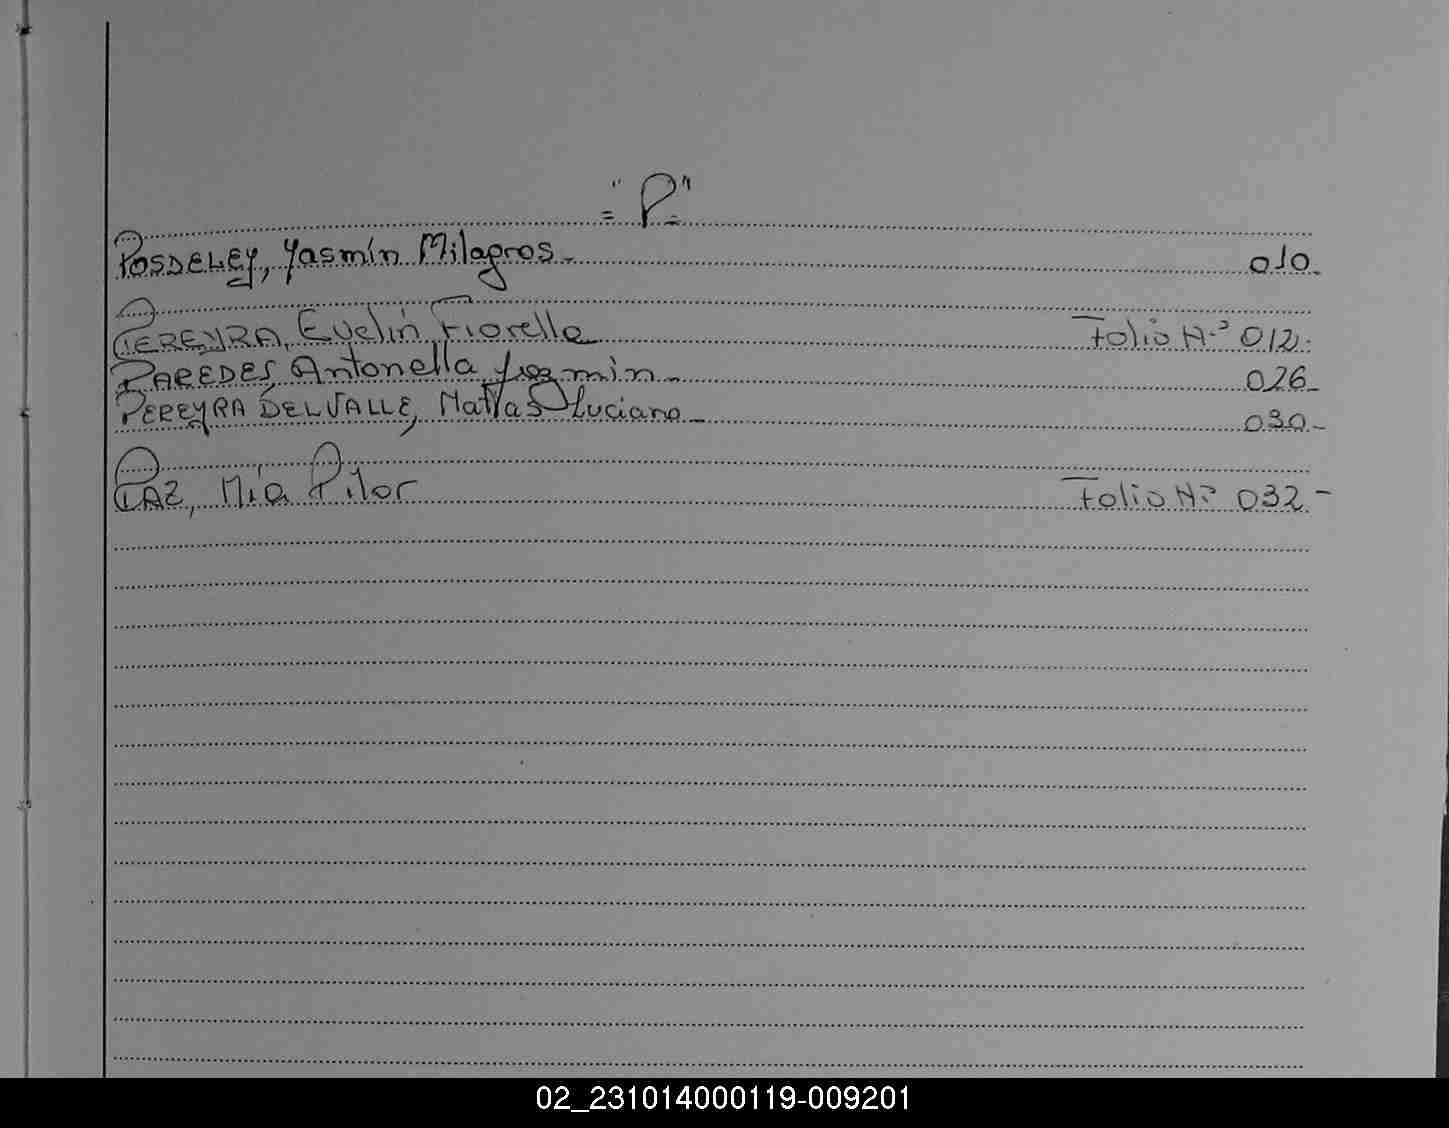 ="P"=
POSDELEY, Yasmín Milagros.- 010.
PEREYRA, Evelín Fiorella Folio Nº 012.-
PAREDES, Antonella Jazmin.- 026.-
PEREYRA DELVALLE, Matías Luciano.- 030.-
PAZ, Mía Pilar Folio Nº 032.-
02_231014000119-009201